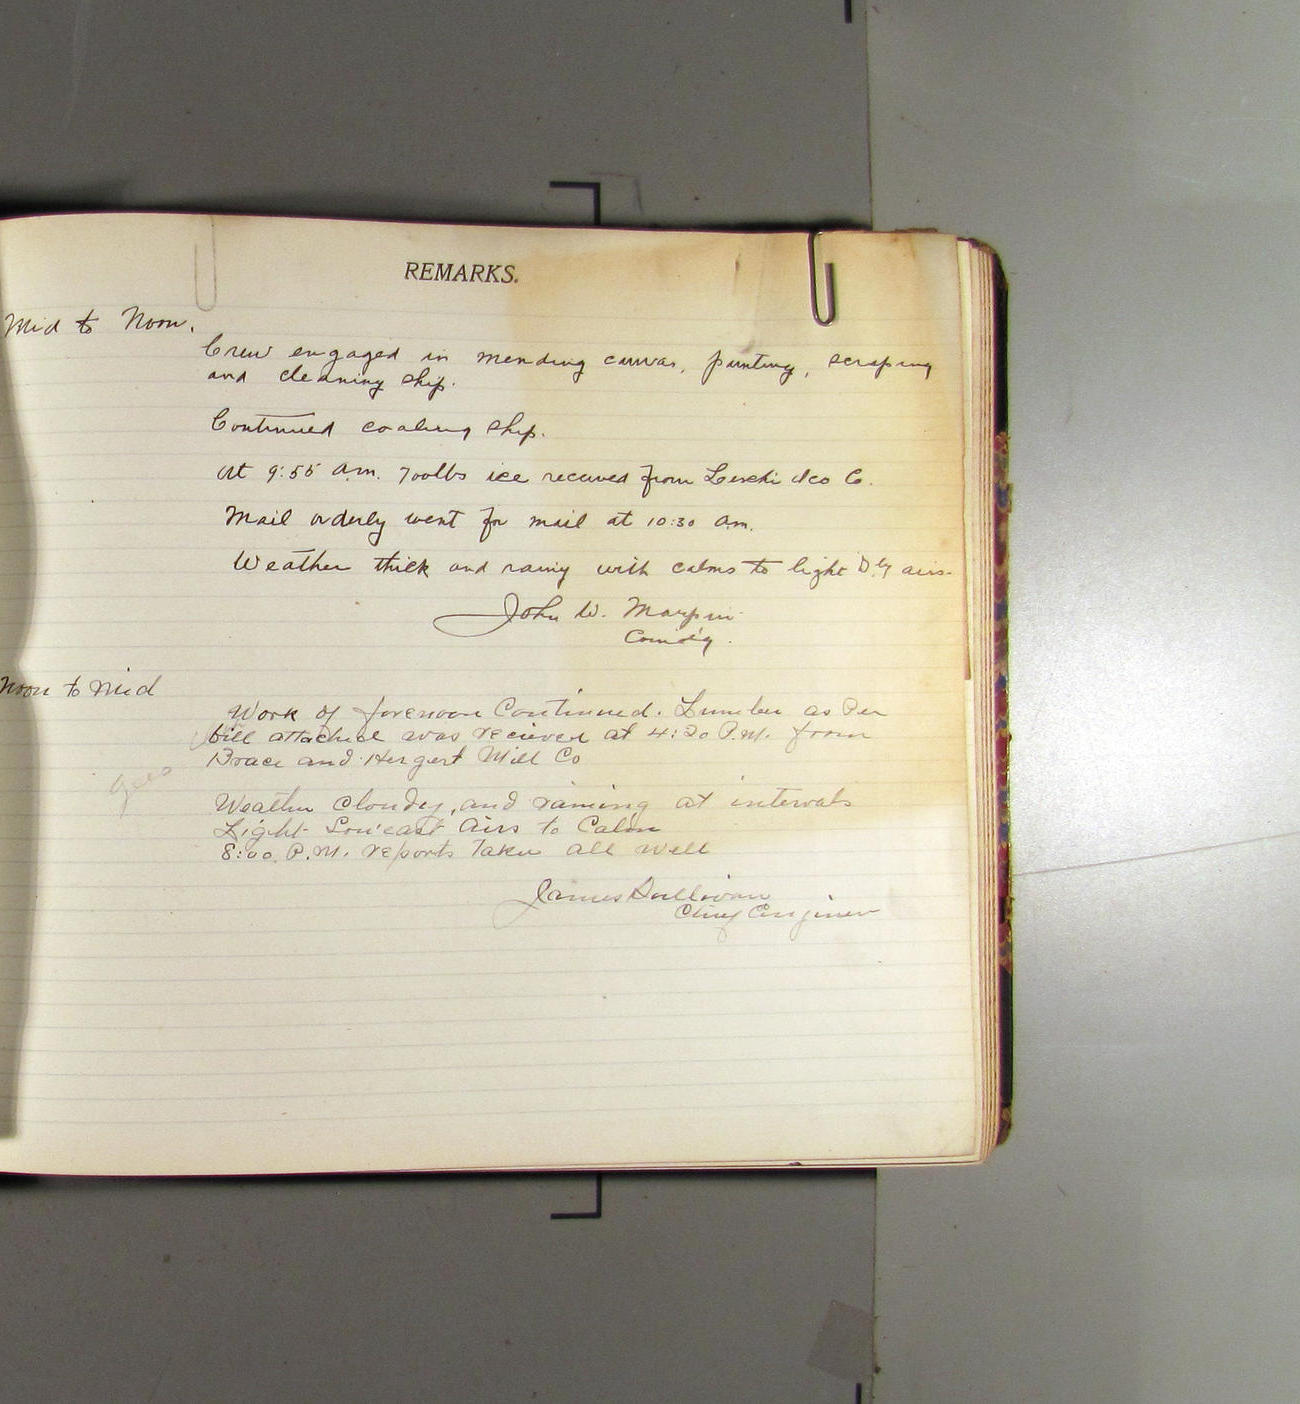 REMARKS.
Mid to Noon.
Crew engaged in mending canvas, painting, scraping
and cleaning ship.
Continued coaling ship.
At 9:55 a.m. 700lbs ice received from Co.
Mail orderly went for mail at 10:30 am.
Weather thick and rainy with calms to light airs.
John W.
Comd'g.
Noon to Mid
Work of forenoon Continued. Lumber as Per
bill attached was recieved at 4:20 P.M. from
Brace and Hergert Mill Co
Weather Cloudy, and raining at intervals
Light Sou'east Airs to Calm
8:00 P.M. reports taken all well
James Sullivan
Chief Engineer